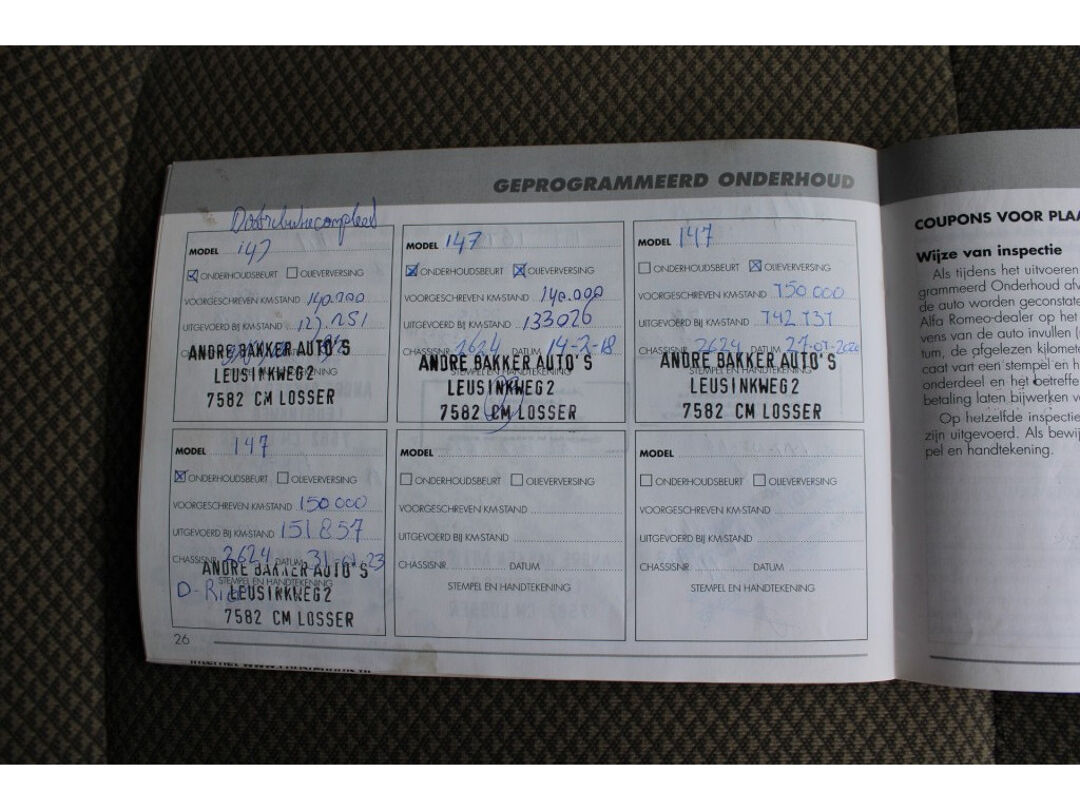 GEPROGRAMMEERD ONDERHOUD
MODEL 147
ONDERHOUDSBEURT OLIEVERVERSING
VOORGESCHREVEN KM-STAND 140.000
UITGEVOERD BIJ KM-STAND 127.251
ANDRE BAKKER AUTO'S
LEUSINKWEG2
7582 CM LOSSER
MODEL 147
ONDERHOUDSBEURT OLIEVERVERSING
VOORGESCHREVEN KM-STAND 140.000
UITGEVOERD BIJ KM-STAND 133026
CHASSISNR. 2624 DATUM 14-2-18
STEMPEL EN HANDTEKENING
ANDRE BAKKER AUTO'S
LEUSINKWEG2
7582 CM LOSSER
MODEL 147
ONDERHOUDSBEURT OLIEVERVERSING
VOORGESCHREVEN KM-STAND 150000
UITGEVOERD BIJ KM-STAND 142 137
CHASSISNR. 2624 DATUM 27-01-2020
STEMPEL EN HANDTEKENING
ANDRE BAKKER AUTO'S
LEUSINKWEG2
7582 CM LOSSER
MODEL 147
ONDERHOUDSBEURT OLIEVERVERSING
VOORGESCHREVEN KM-STAND 150000
UITGEVOERD BIJ KM-STAND 151857
CHASSISNR. 2624 DATUM 31-01-23
STEMPEL EN HANDTEKENING
ANDRE BAKKER AUTO'S
LEUSINKWEG2
7582 CM LOSSER
MODEL
ONDERHOUDSBEURT OLIEVERVERSING
VOORGESCHREVEN KM-STAND
UITGEVOERD BIJ KM-STAND
CHASSISNR. DATUM
STEMPEL EN HANDTEKENING
MODEL
ONDERHOUDSBEURT OLIEVERVERSING
VOORGESCHREVEN KM-STAND
UITGEVOERD BIJ KM-STAND
CHASSISNR. DATUM
STEMPEL EN HANDTEKENING
26
COUPONS VOOR PLAA
Wijze van inspectie
Als tijdens het uitvoeren
grammeerd Onderhoud afw
de auto worden geconstate
Alfa Romeo-dealer op het
vens van de auto invullen (
tum, de afgelezen kilomete
caat van een stempel en h
onderdeel en het betreffe
betaling laten bijwerken v
Op hetzelfde inspectie
zijn uitgevoerd. Als bewij
pel en handtekening.